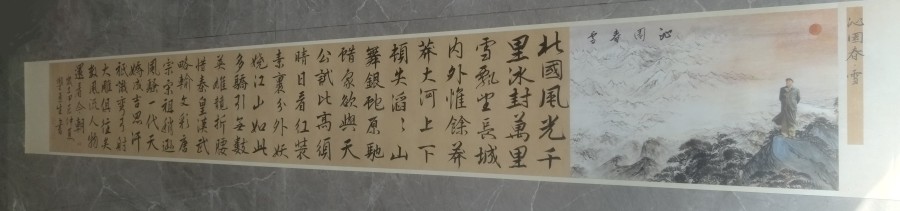 沁园春 雪
沁園春雪
北國風光千
里冰封萬里
雪飄望長城
内外惟餘莽
莽大河上下
頓失滔〻山
舞銀蛇原馳
蜡象欲與天
公試比高須
晴日看紅裝
素裹分外妖
嬈江山如此
多驕引無數
英雄競折腰
惜秦皇漢武
略輸文彩唐
宗宋祖稍遜
風騷一代天
驕成吉思汗
衹識彎弓射
大雕俱往矣
數風流人物
還看今朝